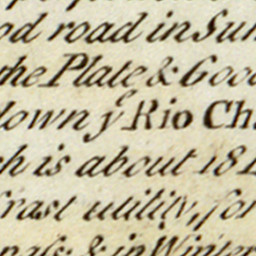 od road in Sum
the Plate & Good
down yͤ Rio Ch
ch is about 18
rast utility, for
& in Winter